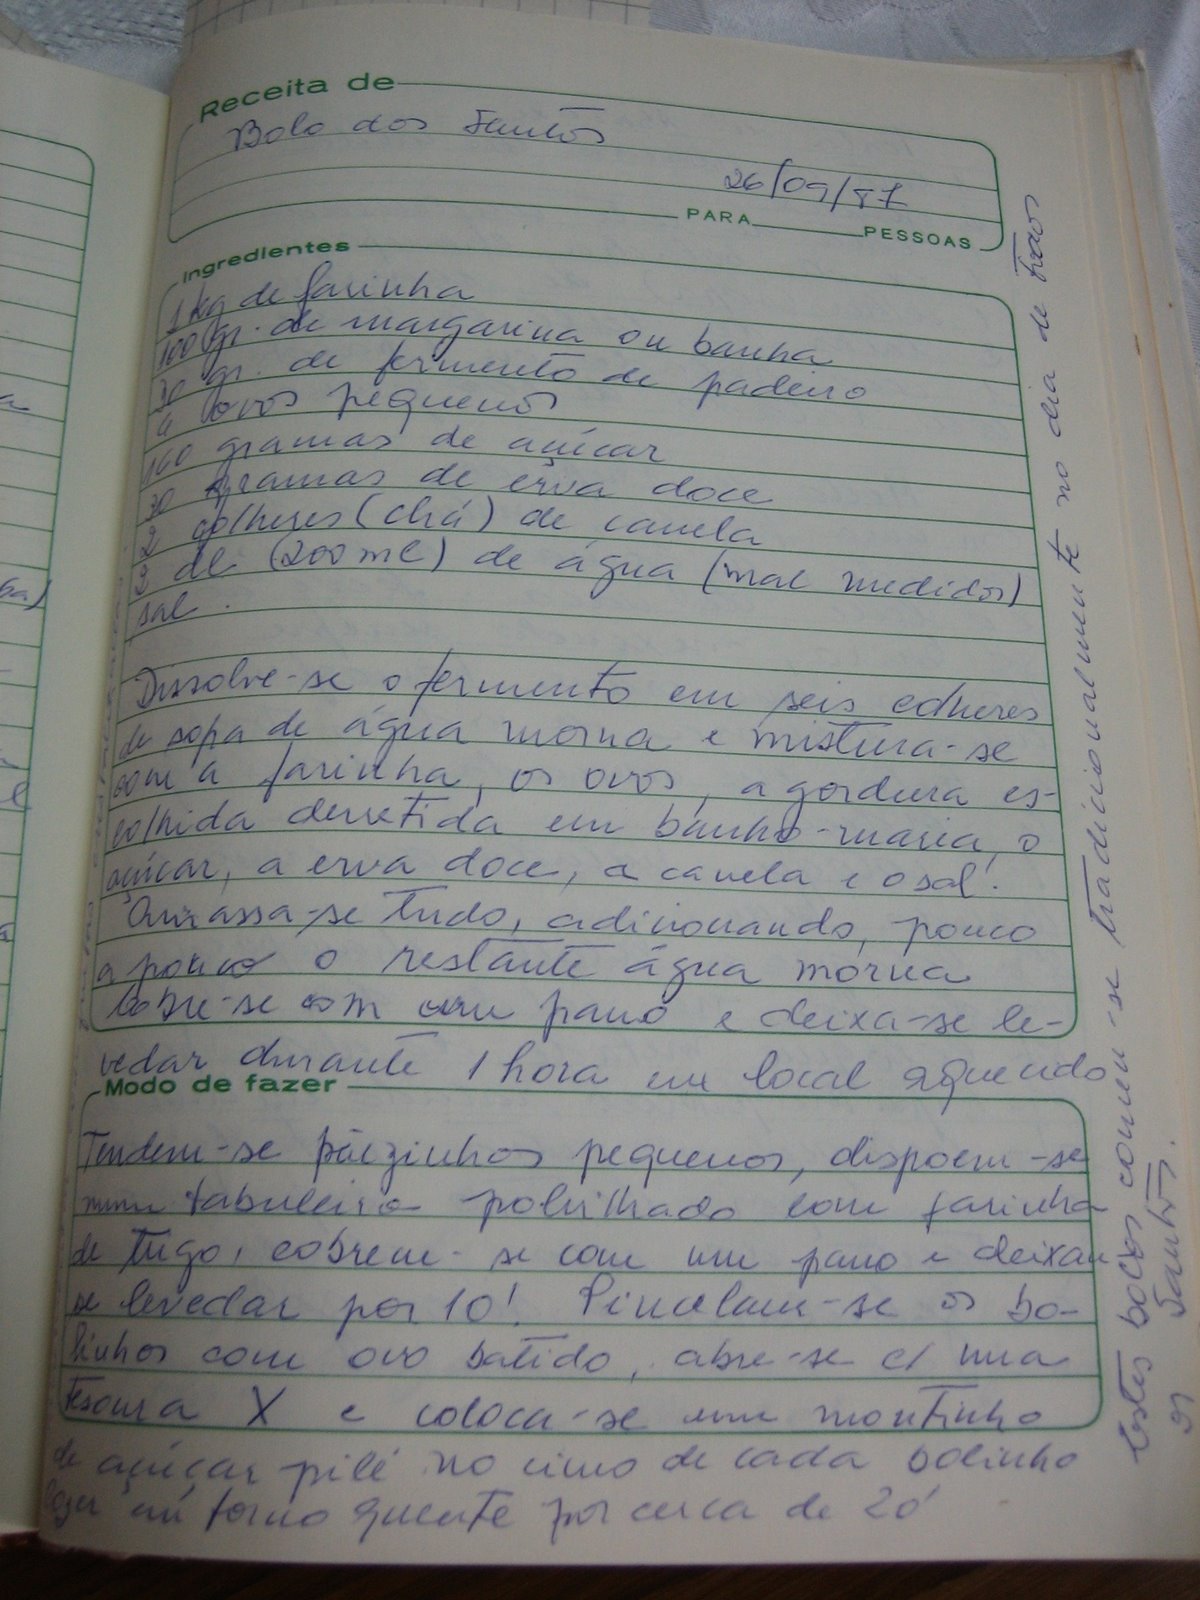 Receita de
Bolo dos Santos
26/09/87
PARA PESSOAS
Ingredientes
1 kg de farinha
100 gr. de margarina ou banha
30 gr. de fermento de padeiro
4 ovos pequenos
160 gramas de açúcar
30 gramas de erva doce
2 colheres (chá) de canela
3 dl (200 ml) de água (mal medidos)
sal.
Dissolve-se o fermento em seis colheres
de sopa de água morna e mistura-se
com a farinha, os ovos, a gordura es-
colhida derretida em banho-maria, o
açúcar, a erva doce, a canela e o sal.
Amassa-se tudo, adicionando, pouco
a pouco o restante água morna
Cobre-se com um pano e deixa-se le-
vedar durante 1 hora em local aquecido
Modo de fazer
Tendem-se pãezinhos pequenos, dispoem-se
num tabuleiro polvilhado com farinha
de trigo, cobrem-se com um pano e deixam
se levedar por 10! Pincelam-se os bo-
linhos com ovo batido, abre-se c/ uma
tesoura X e coloca-se um montinho
de açúcar pilé no cimo de cada bolinho
Cozer em forno quente por cerca de 20'
Estes bolos comem-se tradicionalmente no dia de Todos
os Santos.